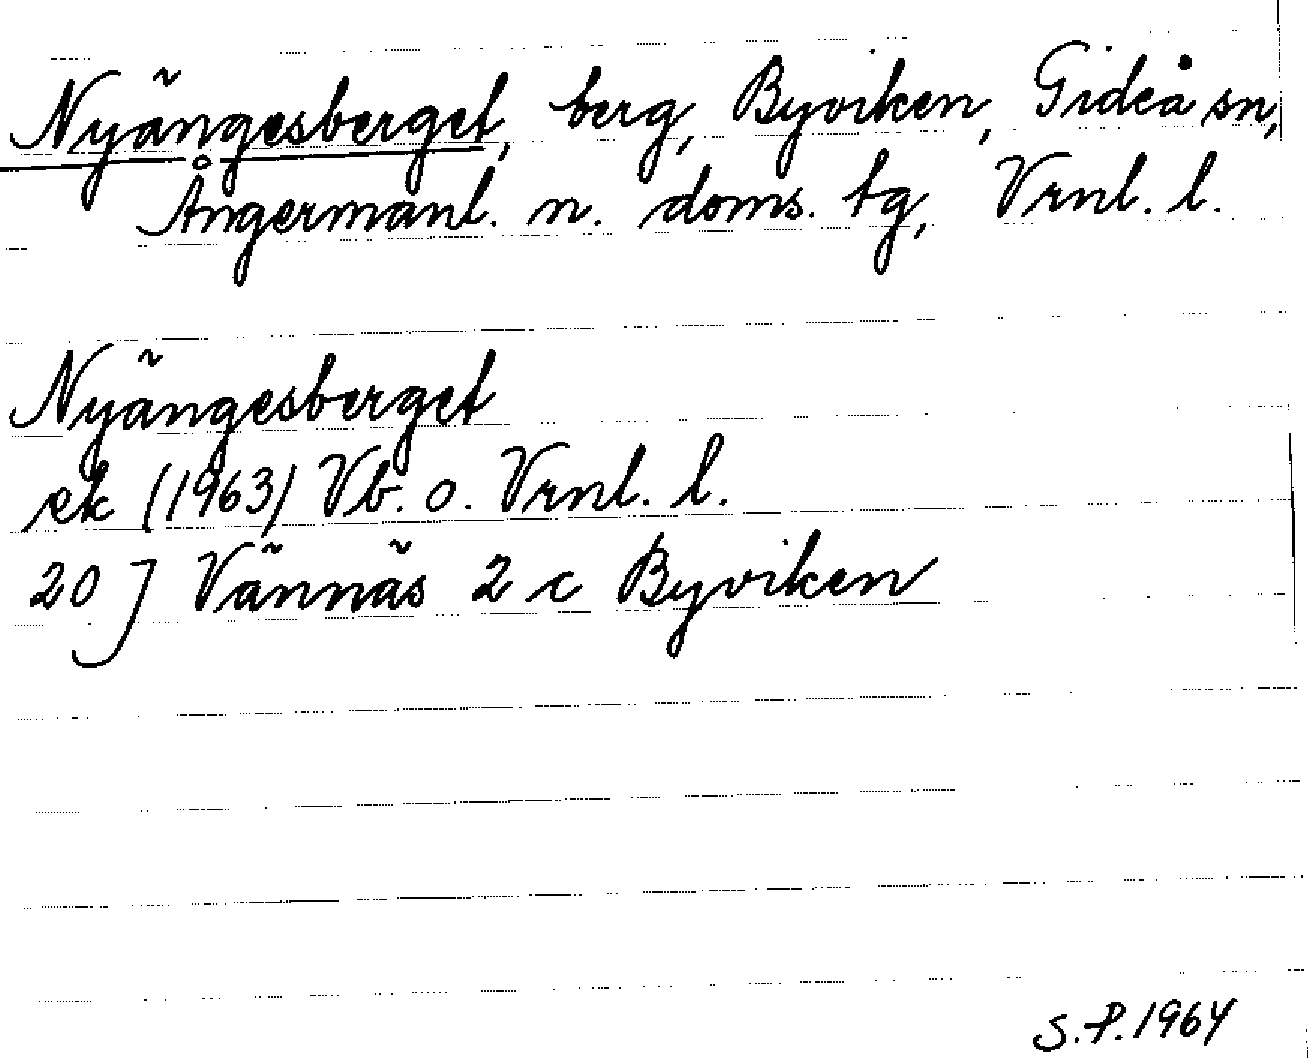 Nyängesberget, berg, Byviken, Gideå sn,
Ångermanl. n. doms. tg, Vrnl. l.
Nyängesberget
ek (1963) Vb. o. Vrnl. l.
20 J Vännäs 2 c Byviken
S.P. 1964